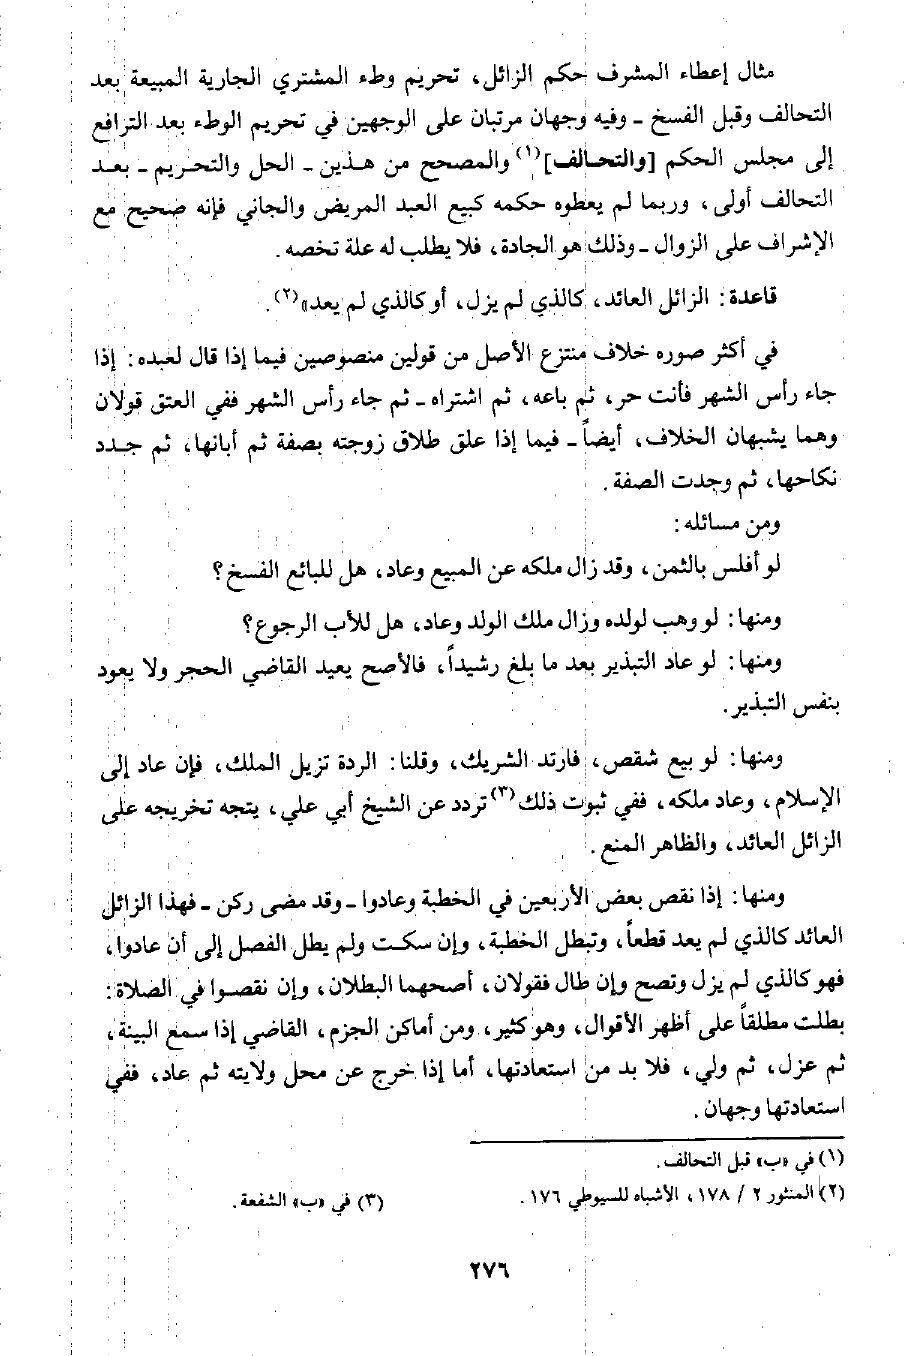 مثال إعطاء المشرف حكم الزائل، تحريم وطء المشتري الجارية المبيعة بعد
التحالف وقبل الفسخ ـ وفيه وجهان مرتبان على الوجهين في تحريم الوطء بعد الترافع
إلى مجلس الحكم [والتحالف](١) والمصحح من هذين ـ الحل والتحريم ـ بعد
التحالف أولى، وربما لم يعطوه حكمه كبيع العبد المريض والجاني فإنه صحيح مع
الإشراف على الزوال ـ وذلك هو الجادة، فلا يطلب له علة تخصه.
قاعدة: الزائل العائد، كالذي لم يزل، أو كالذي لم يعد»(٢).
في أكثر صوره خلاف منتزع الأصل من قولين منصوصين فيما إذا قال لعبده: إذا
جاء رأس الشهر فأنت حر، ثم باعه، ثم اشتراه ـ ثم جاء رأس الشهر ففي العتق قولان
وهما يشبهان الخلاف، أيضاً ـ فيما إذا علق طلاق زوجته بصفة ثم أبانها، ثم جدد
نكاحها، ثم وجدت الصفة.
ومن مسائله:
لو أفلس بالثمن، وقد زال ملكه عن المبيع وعاد، هل للبائع الفسخ؟
ومنها: لو وهب لولده وزال ملك الولد وعاد، هل للأب الرجوع؟
ومنها: لو عاد التبذير بعد ما بلغ رشيداً، فالأصح يعيد القاضي الحجر ولا يعود
بنفس التبذير.
ومنها: لو بيع شقص، فارتد الشريك، وقلنا: الردة تزيل الملك، فإن عاد إلى
الإسلام، وعاد ملكه، ففي ثبوت ذلك(٣) تردد عن الشيخ أبي علي، يتجه تخريجه على
الزائل العائد، والظاهر المنع.
ومنها: إذا نقص بعض الأربعين في الخطبة وعادوا ـ وقد مضى ركن ـ فهذا الزائل
العائد كالذي لم يعد قطعاً، وتبطل الخطبة، وإن سكت ولم يطل الفصل إلى أن عادوا،
فهو كالذي لم يزل وتصح وإن طال فقولان، أصحهما البطلان، وإن نقصوا في الصلاة:
بطلت مطلقاً على أظهر الأقوال، وهو كثير، ومن أماكن الجزم، القاضي إذا سمع البينة،
ثم عزل، ثم ولي، فلا بد من استعادتها، أما إذا خرج عن محل ولايته ثم عاد، ففي
استعادتها وجهان.
(١) في «ب» قبل التحالف.
(٢) المنثور ٢ / ١٧٨، الأشباه للسيوطي ١٧٦. (٣) في «ب» الشفعة.
٢٧٦